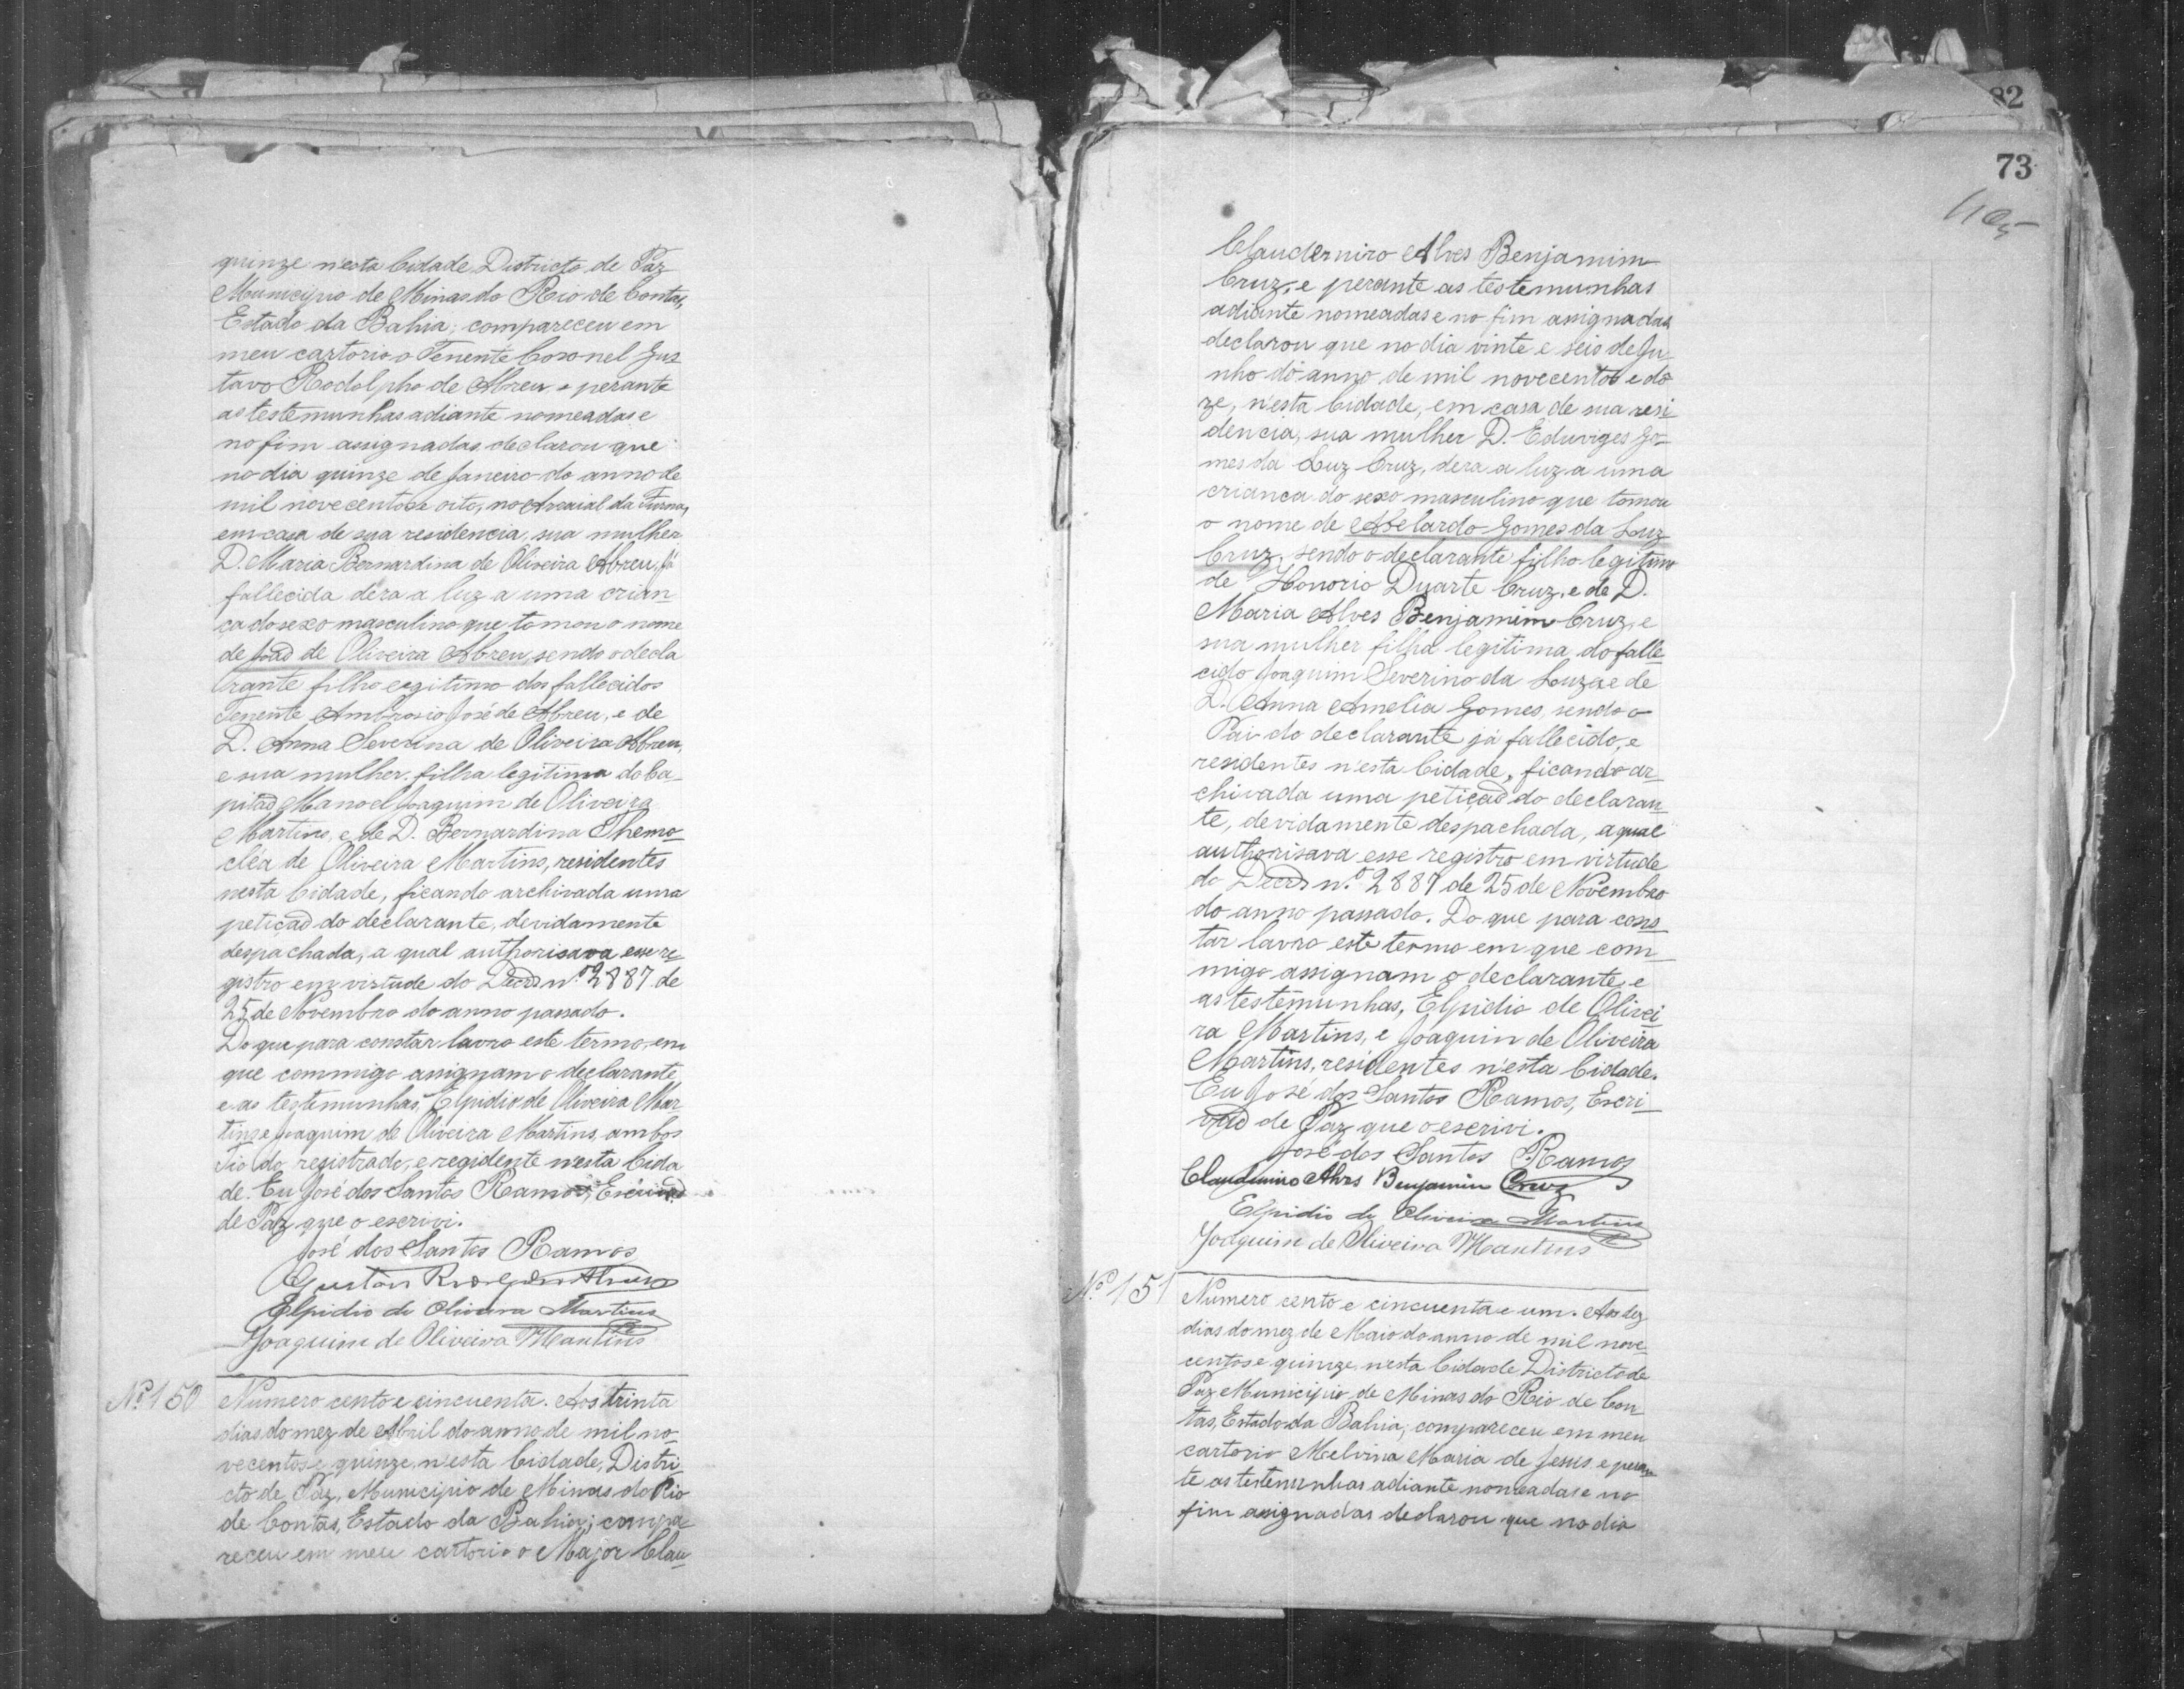 quinze n'esta Cidade Districto de Paz
Municipio de Minas do Rio de Contas,
Estado da Bahia; compareceu em
meu cartorio o Tenente Coronel Gus
tavo Rodolpho de Abreu e perante
as testemunhas adiante nomeadas e
no fim assignadas declarou que
no dia quinze de Janeiro do anno de
mil novecentos e oito, no Arraial da Furna,
em casa de sua residencia, sua mulher
D. Maria Bernardina de Oliveira Abreu, já
fallecida dera a luz a uma crian-
ça do sexo masculino que tomou o nome
de João de Oliveira Abreu, sendo o decla
rante filho legitimo dos fallecidos
Tenente Ambrosio José de Abreu, e de
D. Anna Severina de Oliveira Abreu,
e sua mulher filha legitima do Ca-
pitão Manoel Joaquim de Oliveira
Martins, e de D. Bernardina Themo-
cléa de Oliveira Martins, residentes
nesta Cidade, ficando archivada uma
petição do declarante, devidamente
despachada, a qual authorisava esse re
gistro em virtude do Decrº nº 2887 de
25 de Novembro do anno passado.
Do que para constar lavro este termo, em
que commigo assignam o declarante
e as testemunhas, Elpidio de Oliveira Mar
tins e Joaquim de Oliveira Martins, ambos
Tio do registrado, e regidente n'esta Cida
de. Eu José dos Santos Ramos, Escrivão
de Paz que o escrivi.
José dos Santos Ramos
Gustavo Rodolpho Abreu
Elpidio de Oliveira Martins
Joaquim de Oliveira Martins
Nº 150
Numero cento e cincuenta. Aos trinta
dias do mez de Abril do anno de mil no-
vecentos e quinze, n'esta Cidade, Distri-
cto de Paz, Municipio de Minas do Rio
de Contas, Estado da Bahia; compa-
receu em meu cartorio o Major Clau-
82
73
Clauderniro Alves Benjamim
Cruz, e perante as testemunhas
adiante nomeadas e no fim assignadas,
declarou que no dia vinte e seis de Ju-
nho do anno de mil novecentos e do-
ze, n'esta Cidade, em casa de sua resi
dencia, sua mulher D. Eduviges Go-
mes da Luz Cruz, dera a luz a uma
crianca do sexo masculino que tomou
o nome de Abelardo Gomes da Luz
Cruz, sendo o declarante filho legitimo
de Honorio Duarte Cruz, e de D.
Maria Alves Benjamim Cruz, e
sua mulher filha legitima do falle-
cido Joaquim Severino da Louza e de
D. Anna Amelia Gomes, sendo o
Pai do declarante já fallecido, e
residentes n'esta Cidade, ficando ar-
chivada uma petição do declaran-
te, devidamente despachada, a qual
authorisava esse registro em virtude
do Decrº nº 2887 de 25 de Novembro
do anno passado. Do que para cons-
tar lavro este termo em que com-
migo assignam o declarante e
as testemunhas, Elpidio de Olivei
ra Martins, e Joaquim de Oliveira
Martins, residentes n'esta Cidade.
Eu José dos Santos Ramos, Escri-
vão de Paz que o escrivi.
José dos Santos Ramos
Claudemiro Alves Benjamin Cruz
Elpidio de Oliveira Martins
Joaquim de Oliveira Martins
Nº 151
Numero cento e cincuenta e um. Aos dez
dias do mez de Maio do anno de mil nove
centos e quinze, nesta Cidade Districto de
Paz Municipio de Minas do Rio de Con
tas, Estado da Bahia; compareceu em meu
cartorio Melvina Maria de Jesus e peran
te as testemunhas adiante nomeadas e no
fim assignadas declarou que no dia